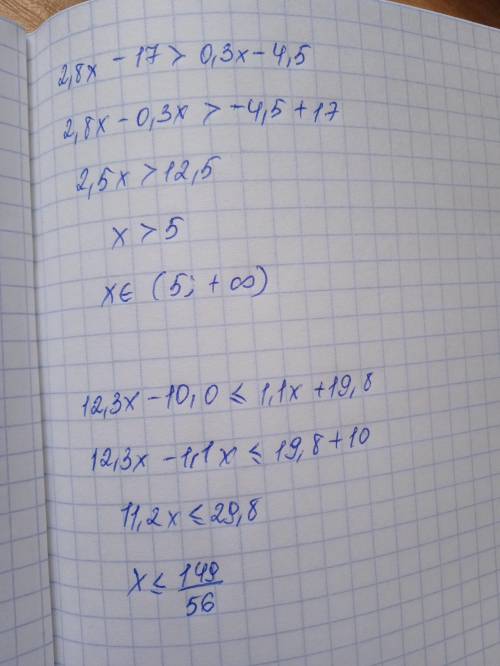 2,8x - 17 > 0,3x - 4,5
2,8x - 0,3x > -4,5 + 17
2,5x > 12,5
x > 5
x ∈ (5; +∞)
12,3x - 10,0 ≤ 1,1x + 19,8
12,3x - 1,1x ≤ 19,8 + 10
11,2x ≤ 29,8
x ≤ 149/56